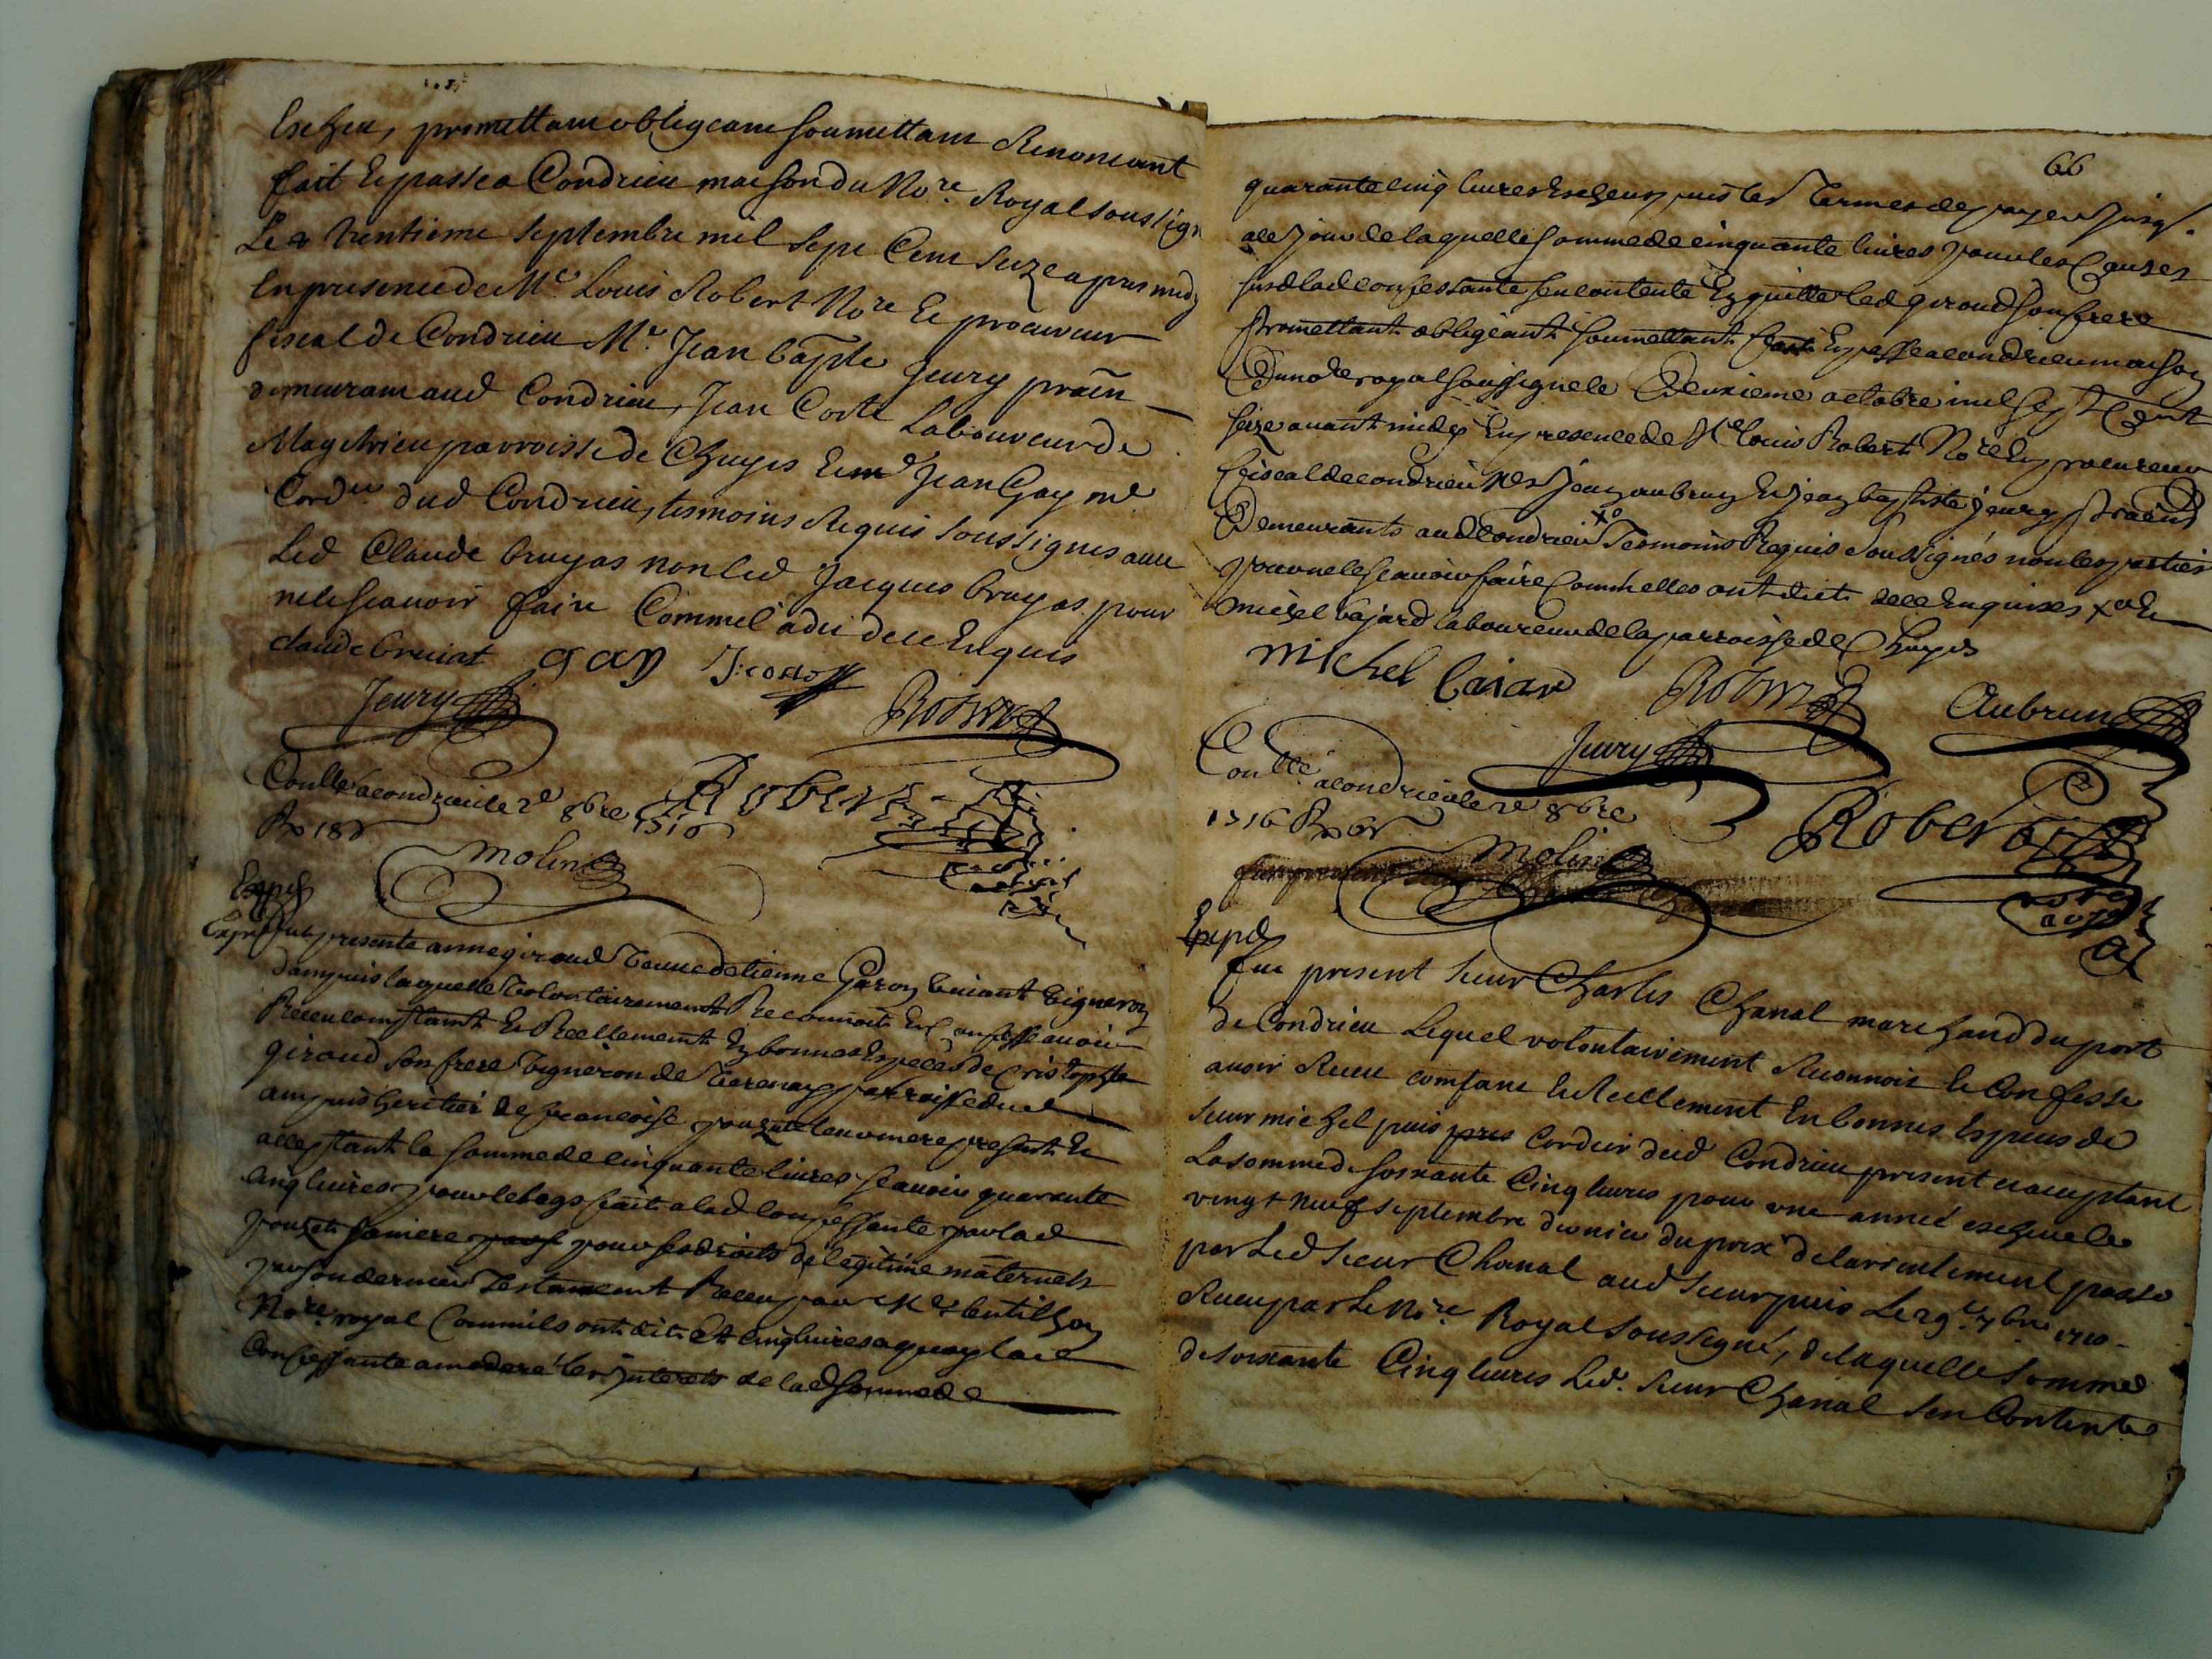 Escheu, promettant obligeant soumettant Renoncant
fait Et passé a Condrieu maison du No.re Royal soussigné
Le trentieme septembre mil sept Cent seize apres midy
En presence de Me. Louis Robert No.re Et procureur
fiscal de Condrieu Me. Jean Bapte Jeury pratn
demeurant aud Condrieu, Jean Coste Laboureur de
parroisse de Chuyes Et me Jean Gay me
Cord.er dud Condrieu, tesmoins Requis soussignes avec
Led Claude bruyas non led Jacques bruyas pour
ne le scavoir faire Comme il a dit de ce Enquis
claude bruiat gay J: coste
Jeury Robert
Conllé a condrieu le 2e 8bre 1716 Robert
R 18s
molin
Expd
fut presente anne giroud veuve detienne garon vivant vigneron
dampuis laquelle volontairement Reconnoit Et confesse avoir
Receu comptant Et Reellement En bonnes Especes de Cristophle
giroud son frere vigneron de parroisse dud
ampuis heritier de francoise leur mere present Et
acceptant la somme de cinquante livres scavoir quarante
cinq livres pour le legs fait a lad confessante par lad
sa mere pour ses droits de legitime maternels
par son dernier Testament Receu par Me
No.re royal Comm ils ont dit Et cinq livres a quoy lad
Confessante a moderé les Interets de lad somme de
66
quarante cinq livres Escheus puis les Termes de payer Jusq.
a ce Jour de laquelle somme de cinquante livres pour les Causes
susd lad confessante sen contente Et quitte led giroud son frere
Promettant obligeant soumettant fait Et passé a condrieu maison
Du no.re royal soussigné le Deuxieme octobre mil sept Cent
seize avant midy En presence de Me louis Robert No.re Et procureur
fiscal de condrieu Mes Jean aubrun Et Jean baptiste jeury
Demeurants aud Condrieu xo Tesmoins Requis Soussignés non les parties
pour ne le scavoir faire Comm elles ont dict de ce Enquises xo Et
michel bajard laboureur de la parroisse de Chuyes
michel baiard Robert Aubrun
Jeury
Conllé a condrieu le 2e 8bre
1716 R 6s Robert
molin
Expd
fut present sieur Charles Chanal marchand du port
de Condrieu Lequel volontairement Reconnoit Et Confesse
avoir Receu comptant Et Reellement En bonnes Especes de
sieur michel puis Cordier dud Condrieu present et acceptant
La somme de soixante Cinq livres pour une année escheue le
vingt neuf septembre dernier du prix de larrentement passé
par Led sieur Chanal aud sieur puis Le 29e 7bre 1710
Receu par Le No.re Royal Soussigné, de laquelle somme
de soixante Cinq livres Led. sieur Chanal sen Contente